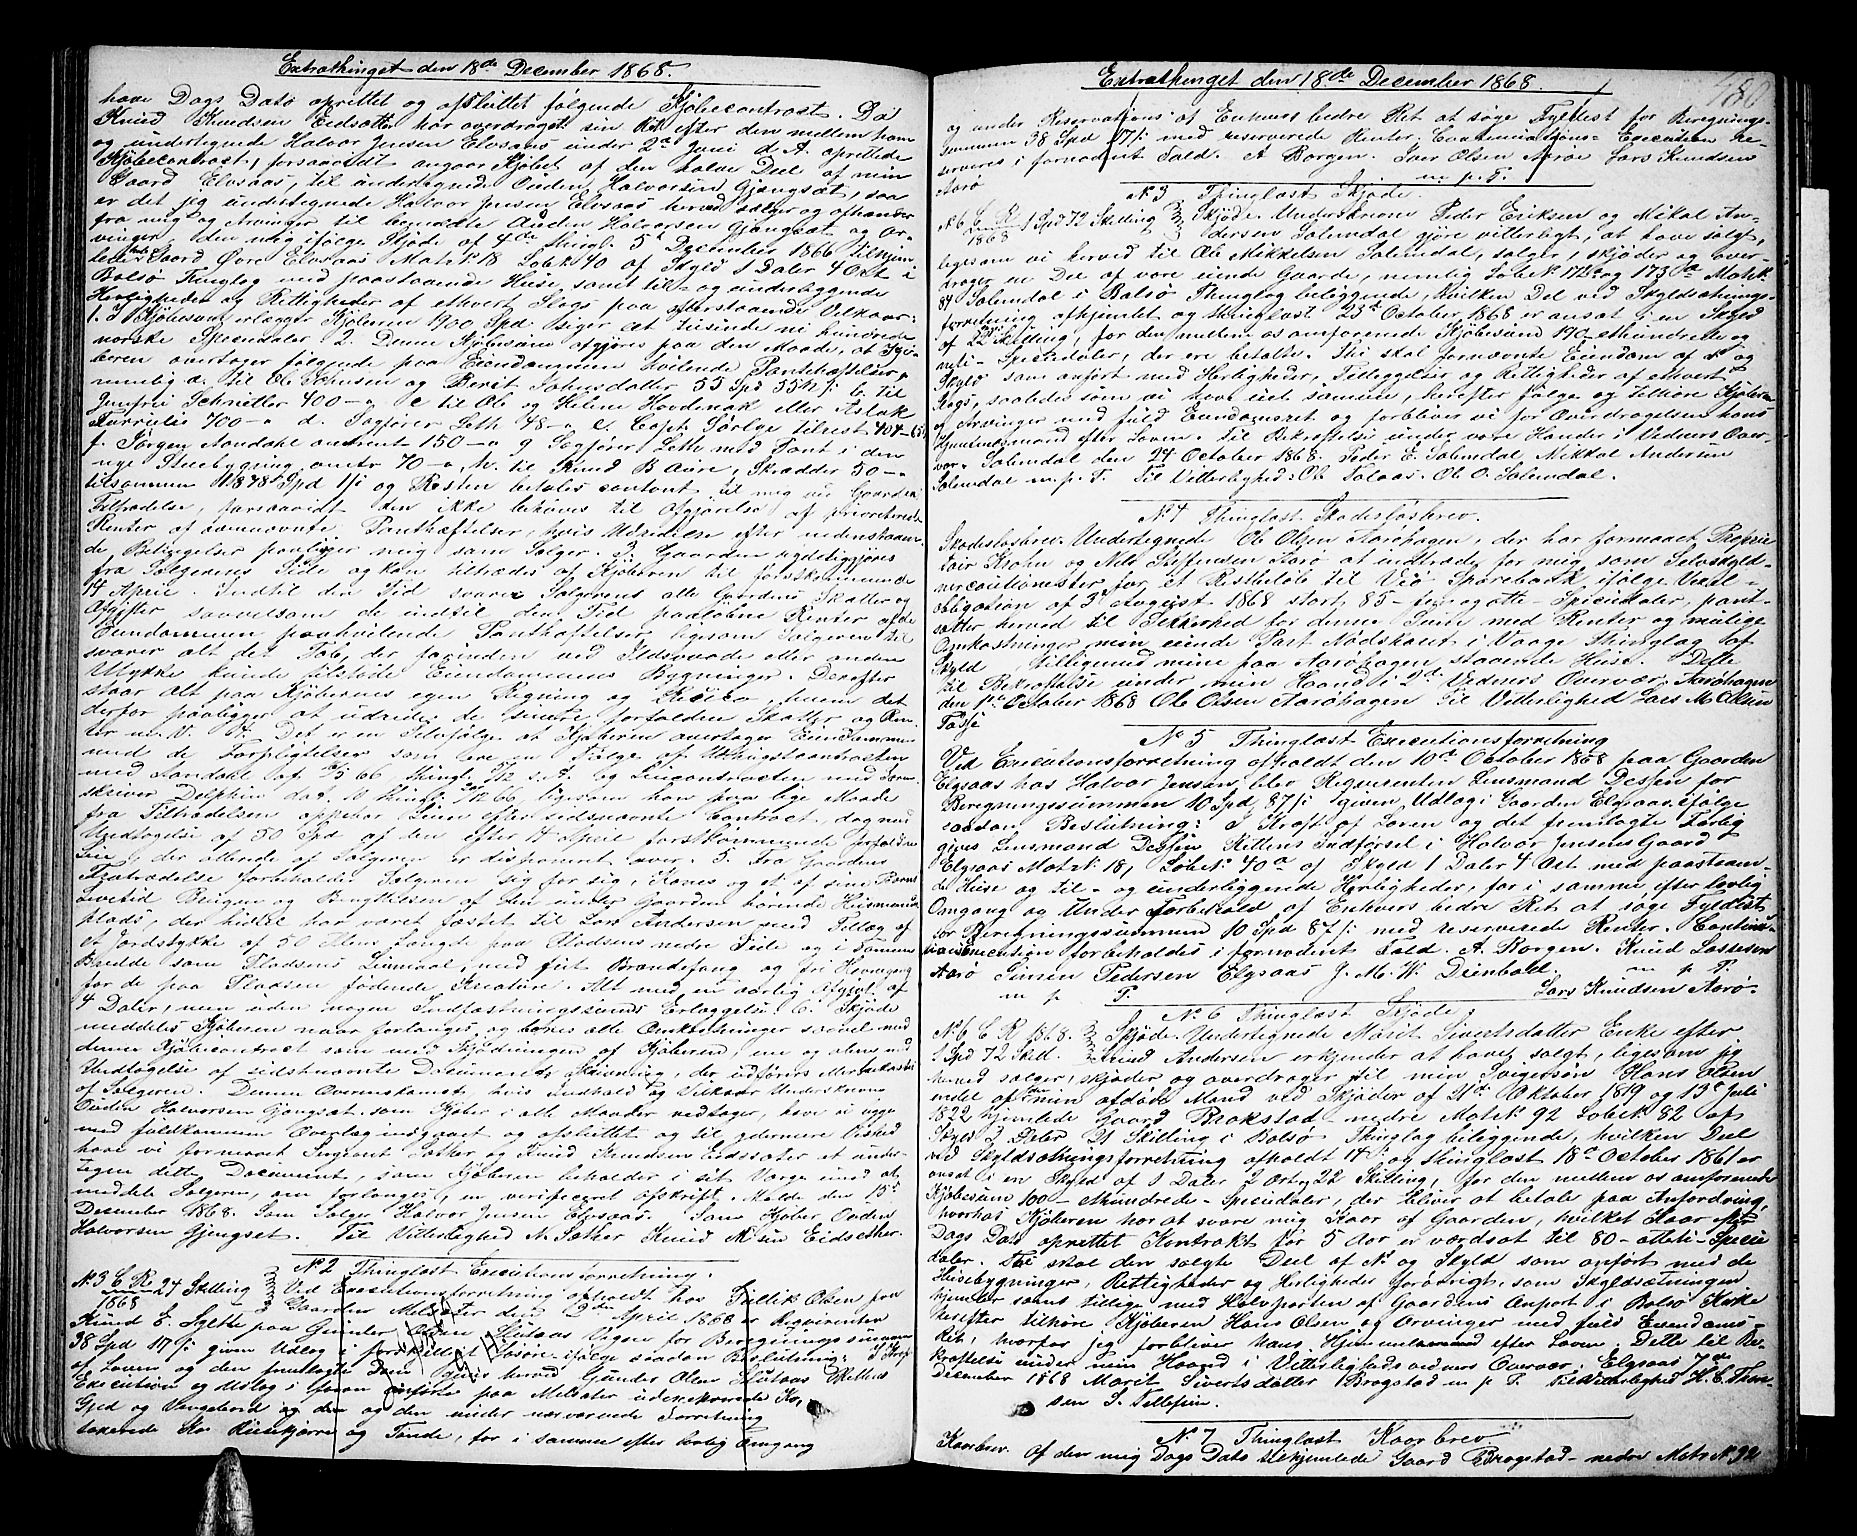 Extrathinget den 18de December 1868.
have Dags Dato oprettet og afsluttet følgende Kjøbecontract. Da
Knud Knudsen Eidsætter har overdraget sin Ret efter den mellem ham
og undertegnede Halvor Jensen Elvsaas under 2den Juni d. A. oprettede
Kjøbecontract, forsaavidt angaar Kjøbet af den halve Deel af min
Gaard Elvsaas, til undertegnede Ouden Halvorsen Gjængsæt, saa
er det jeg undertegnede Halvor Jensen Elvsaas herved sælger og afhænder
fra mig og Arvinger til bemeldte Ouden Halvorsen Gjængsæt og Ar-
vinger, den mig ifølge Skjøde af 4de thingl. 5te December 1866 tilhjem-
lede Gaard Øvre Elvsaas Matr.N. 18 Løb.N. 40 af Skyld 1 Daler 4 Ort i
Bolsø Thinglag med paastaaende Huse samt til- og underliggende
Herligheder og Rettigheder af ethvert Slags paa efterstaaende Vilkaar:
1. I Kjøbesum erlægger Kjøberen 1900 Spd siger et tusinde ni hundrede
norske Speciedaler. 2. Denne Kjøbesum afgjøres paa den Maade, at Kjø-
beren overtager følgende paa Eiendommen hvilende Pantehæftelser,
nemlig a. til Ole Johnsen og Berit Johnsdatter 55 Spd 55½ ß b. til
Jomfrue Schnitler 400-" c til Ole og Helene Hovdenak eller Aslak
700-" d. Sagfører Leth 48-" e. Capt. tilrest 404-65
f. Jørgen Aandahl omtrent 150-" g Sagfører Leth med Pant i den
nye Stuebygning omtr 70-" h. til Knud B Aure, Skrædder 50-"
tilsammen 1878 Spd 1 ß og Resten betales contant til mig ved Gaardens
Tiltrædelse, forsaavidt den ikke behøves til Afgjørelse af prioriterede
Renter af fornævnte Panthæftelser, hvis Udredelse efter nedenstaaen-
de Betingelser paaligger mig som Sælger. 3. Gaarden ryddeliggjøres
fra Sælgerens Side og kan tiltrædes af Kjøberen til førstkommende
14 April. Indtil den Tid svarer Sælgeren alle Gaardens Skatter og
Afgifter saavelsom de indtil den Tid paaløbne Renter af de
Eiendommen paahvilende Panthæftelser, ligesom Sælgeren til-
svarer alt det Tab, der forinden ved Ildsvaade eller anden
Ulykke kunde tilstøde Eiendommens Bygninger. Derefter
staar Alt paa Kjøberens egen Regning og Risico, hvem det
derfor paaligger at udrede de senere forfaldne Skatter og Ren-
ter m. V. 4. Det er en Selvfølge, at Kjøberen overtager Eiendommen
med de Forpligtelser som ere en Følge af Udhugstcontracten
med Aandahl af 5/5 66 thingl. 5/12 s. A. og Leiecontracten med Soren-
skriver Delphin dat. og thingl. 5/12 66 ligesom han paa lige Maade
fra Tiltrædelsen oppebær Leien efter sidstnævnte Contract, dog med
Undtagelse af 50 Spd af den efter 14 April førstkommende forfaldne
Leie, der allerede af Sælgeren er disponeret over. 5. Fra Gaardens
Fratrædelse forbeholder Sælgeren sig for sig, Kones og et af sine Børns
Levetid Brugen og Benyttelsen af den under Gaarden hørende Husmands
plads, der hidtil har været fæstet til Lars Andersen med Tillæg af
et Jordstykke af 50 Alens Længde paa Pladsens nedre Side og i samme
Bredde som Pladsens Linmaal, med frit Brændefang og fri Havnegang
for de paa Pladsen fødende Kreature. Alt med en aarlig Afgift af
4 Daler, men uden nogen Indfæstningssums Erlæggelse. 6. Skjøde
meddeles Kjøberen naar forlanges, og bæres alle Omkostninger saavel med
denne Kjøbecontract som med Skjødningen af Kjøberen, ene og alene med
Undtagelse af sidstnævnte Documents Skrivning, der udføres
af Sælgeren. Denne Overenskomst, hvis Indhold og Vilkaar Underskrevne
Ouden Halvorsen Gjængsæt som Kjøber i alle Maader vedtager, have vi
med fuldkommen Overlæg indgaaet og afsluttet og til ydermere Vished
have vi formaaet Sergeant Sæther og Knud Knudsen Eidsæter at under-
tegne dette Document, som Kjøberen beholder i sit Værge imod at
meddele Sælgeren, om forlanges, en verificeret Afskrift. Molde den 15de
December 1868. Som Sælger Halvor Jensen Elvsaas. Som Kjøber Ouden
Halvorsen Gjengset. Til Vitterlighed A. Sæther Knud K.sen Eidsether.
N. 2 Thinglæst Executionsforretning.
N. 3 C. Re 24 Skilling Ved Executionsforretning afholdt hos Tollik Olsen paa
1868 Gaarden Melsæter den 2den April 1868 er Reqvirenten
Knud E. Sylte paa Gunder Olsen Hutaas Vegne for Beregningssummen
38 Spd 17 ß given Udlæg i Løsøre ifølge saadan Beslutning: I Kraft
af Loven og den fremlagte Dom gives herved Gunder Olsen Hutaas Rettens
Execution og Udlæg i foran anførte paa Melsæter
Spd og Vængebord og den og den under nærværende Forretning
Ko Risekjærre og Tønde, for i samme efter lovlig Omgang
Extrathinget den 18de December 1868.
480
og under Reservations af Enhvers bedre Ret at søge Fyldest for Beregnings-
summen 38 Spd 17 ß med reserverede Renter. Continuations Execution re-
serveres i fornødent Fald. A Borgen. Iver Olsen Aarøe Lars Knudsen
Aarø m. p. P.
N. 3 Thinglæst Skjøde
N. 6 C. R. 1 Spd 72 Skilling Skjøde. Underskrevne Peder Eriksen og Mikal An-
1868 dersen Solemdal gjøre vitterligt, at have solgt,
ligesom vi herved til Ole Mikkelsen Solemdal, sælger, skjøder og over-
drager en Del af vore eiende Gaarde, nemlig Løbe N. 172a og 173a Matr.N.
84 Solemdal i Bolsø Thinglag beliggende, hvilken Del ved Skyldsætnings-
forretning afhjemlet og thinglæst 23de October 1868 er ansat i en Skyld
af 22 Skilling, for den mellem os omforenede Kjøbesum 190- ethundrede og
niti- Speciedaler, der ere betalte. Thi skal fornævnte Eiendom af N. og
Skyld som anført med Herligheder, Tilliggelser og Rettigheder af ethvert
Slags, saaledes som vi have eiet samme, herefter følge og tilhøre Kjøberen
og Arvinger med fuld Eiendomsret og forbliver vi for Overdragelsen hans
Hjemmelsmænd efter Loven. Til Bekræftelse under vore Hænder i Vidners Over-
vær. Solemdal den 24 October 1868. Peder E. Solemdal, Mikkal Andersen
Solemdal m. p. P. Til Vitterlighed: Ole Tolaas. Ole O. Solemdal.
N. 4 Thinglæst Skadesløsbrev.
Skadesløsbrev. Undertegnede Ole Olsen Aarøhagen, der har formaaet Proprie
tair Krohn og Nils Steffensen Aarø at indtræde for mig som Selvskyld-
nercautionister for et Restbeløb til Veø Sparebank ifølge Vexel-
obligation af 3die August 1868 stort 85-fem og otte- Speciedaler, pant-
sætter herved til Sikkerhed for denne Sum med Renter og mulige
Omkostninger min eiende Part Nødskaret i Vaage Thinglag af
Skyld , tilligemed mine paa Aarøhagen staaende Huse. Dette
til Bekræftelse under min Haand i 2de Vidners Overvær. Aarøhagen
den 1ste October 1868 Ole Olsen Aarøhagen Til Vitterlighed Lars M. Olsen
Fosse
N. 5 Thinglæst Executionsforretning
Ved Executionsforretning afholdt den 10de October 1868 paa Gaarden
Elgsaas hos Halvor Jensen blev Reqvirenten Lensmand Dessen for
Beregningssummen 10 Spd, 87 ß given Udlæg i Gaarden Elgsaas ifølge
saadan Beslutning: I Kraft af Loven og det fremlagte Forlig
gives Lensmand Dessen Rettens Indførsel i Halvor Jensens Gaard
Elgsaas Matr.N. 18, Løbe N. 40a af Skyld 1 Daler 4 Ort med paastaaen-
de Huse og til- og underliggende Herligheder, for i samme efter lovlig
Omgang og under Forbehold af Enhvers bedre Ret at søge Fyldest
for Beregningssummen 10 Spd 87 ß med reserverede Renter. Continu-
ations Execution forbeholdes i fornødent Fald. A. Borgen. Knud Lassesen
Aarø Simen Pedersen Elgsaas J. M. W. Dienbold. m p P.
m p P. Lars Knudsen Aarø.
N. 6 Thinglæst Skjøde
N. 6 C. R 1868. Skjøde. Undertegnede Marit Sivertsdatter Enke efter
1 Spd 72 Skil. Knud Andersen erkjender at have solgt, ligesom jeg
herved sælger, skjøder og overdrager til min Svigersøn Hans Olsen
endel af min afdøde Mand ved Skjøder af 21de Oktober 1819 og 13de Juli
1822 hjemlede Gaard Brokstad- nedre Matr.N. 92 Løbe N. 82 af
Skyld 2 Daler 21 Skilling i Bolsø Thinglag beliggende, hvilken Deel
ved Skyldsætningsforretning afholdt 14de og thinglæst 18de October 1861 er
ansat i en Skyld af 1 Daler 2 Ort 22 Skilling, for den mellem os omforenede
Kjøbesum 100- Ethundrede- Speciedaler, der bliver at betale paa Anfordring,
hvorhos Kjøberen har at svare mig Kaar af Gaarden, hvilket Kaar efter
Dags Dato oprettet Kontrakt for 5 Aar er værdsat til 80- otteti- Specie
daler. Thi skal den solgte Deel af N. og Skyld som anført med de
Husebygninger, Rettigheder og Herligheder forøvrigt, som Skyldsætningen
hjemler samt tillige med Halvparten af Gaardens Anpart i Bolsø Kirke
herefter tilhøre Kjøberen Hans Olsen og Arvinger med fuld Eiendoms-
Ret, hvorfor jeg forbliver hans Hjemmelsmand efter Loven. Dette til Be-
kræftelse under min Haand i Vitterlighedsvidners Overvær. Elgsaas 7de
December 1868 Marit Sivertsdatter Brogstad m p P. Til Vitterlighed H. C. Thom-
sen S. Tellefsen.
N. 7 Thinglæst Kaarbrev
Kaarbrev. Af den mig Dags Dato tilhjemlede Gaard Brogstad- nedre Matr N. 92